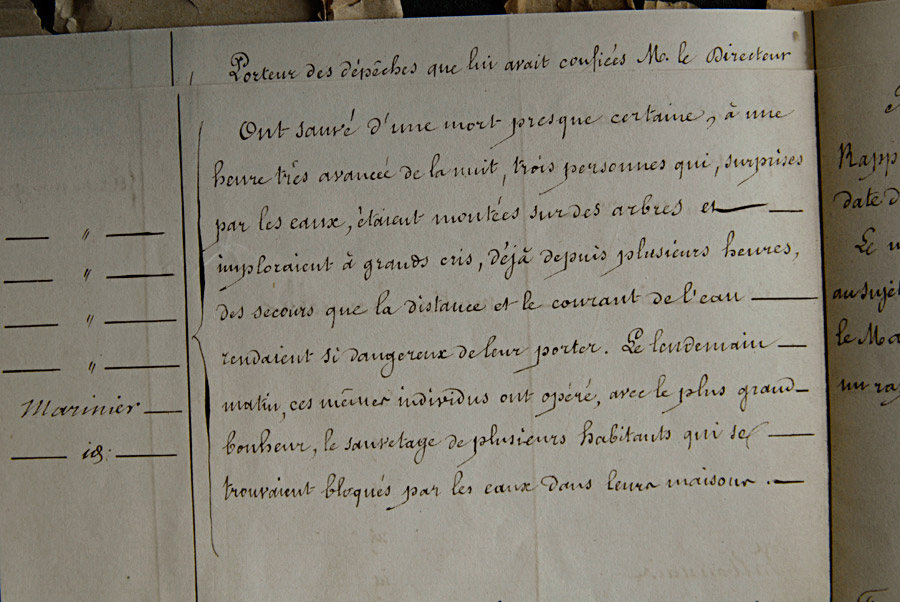 Porteur des dépêches que lui avait confiées M. le Directeur
Ont sauvé d'une mort presque certaine, à une
heure très avancée de la nuit, trois personnes qui, surprises
par les eaux, étaient montées sur des arbres et
imploraient à grands cris, déjà depuis plusieurs heures,
des secours que la distance et le courant de l'eau
rendaient si dangereux de leur porter. Le lendemain
matin, ces mêmes individus ont opéré, avec le plus grand
bonheur, le sauvetage de plusieurs habitants qui se
trouvaient bloqués par les eaux dans leurs maisons.
— " —
— " —
— " —
— " —
Marinier —
— id: —
Rapp
date d
Le
au sujet
le Ma
un ra